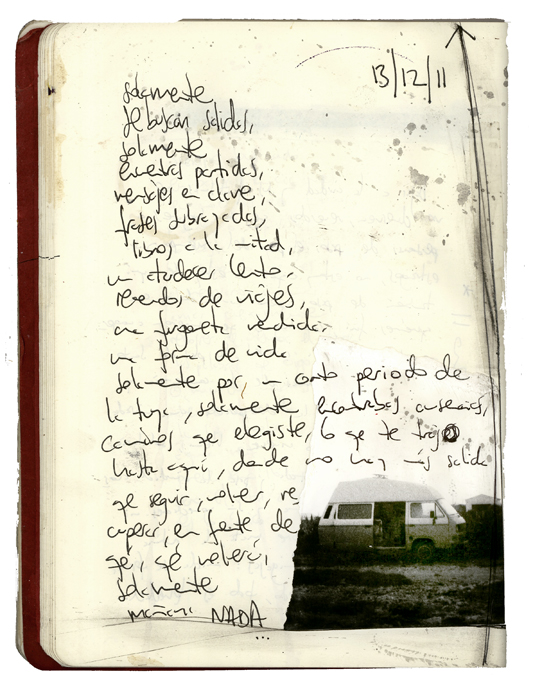 13/12/11
solamente
se buscan salidas,
solamente
encuentras partidas,
mensajes en clave,
frases subrayadas,
libros a la mitad,
un atardecer lento,
recuerdos de viajes,
una furgoneta vendida,
una forma de vida
solamente por, un corto periodo de
la tuya, solamente encontrabas
caminos que elegiste, lo que te trajo
hasta aquí, donde no hay más salida
que seguir, volver, re
cuperar, en frente de
que, qué volverá,
solamente
mañana NADA
...